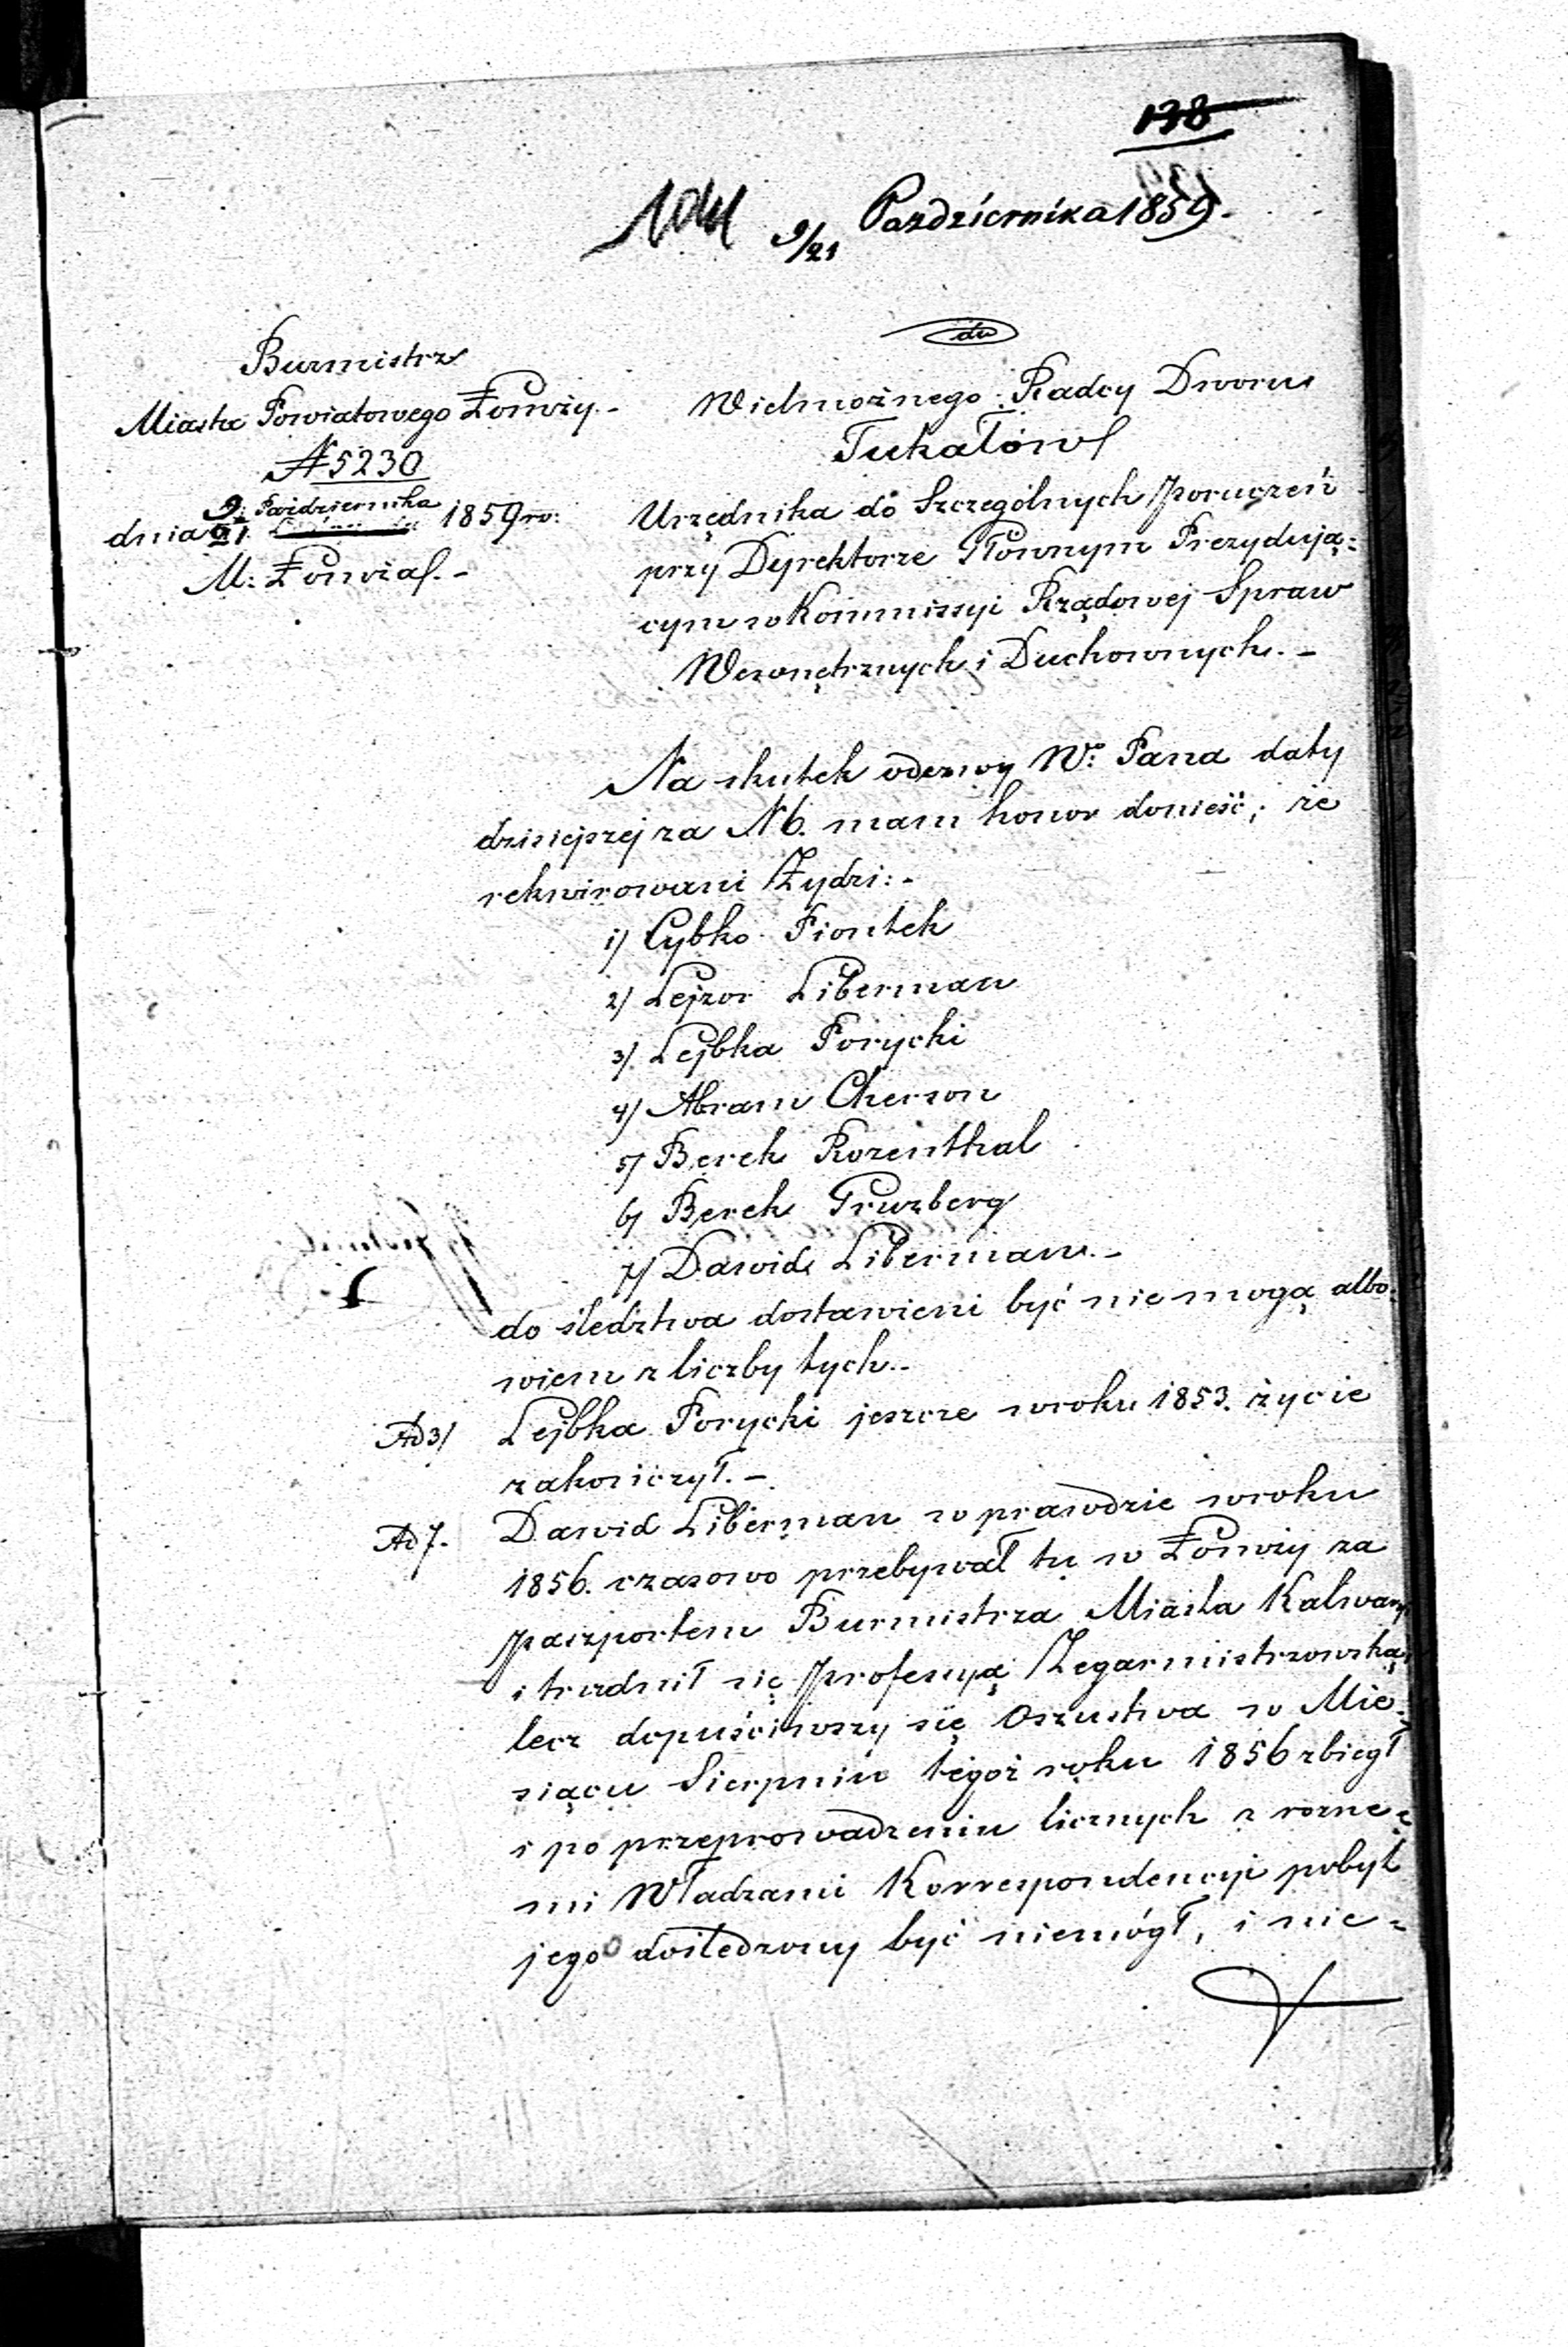 138
1041 9/21 Października 1859.
Burmistrz
Miasta Powiatowego Łomży.-
N 5230
dnia 9/21 Października 1859 ro:
M: Łomża.-
do
Wielmożnego Radcy Dworu
Tukałow
Urzędnika do Szczególnych poruczeń
przy Dyrektorze Głównym Prezydują=
cym w Kommissyi Rządowej Spraw
Wewnętrznych i Duchownych.-
Na skutek odezwy W: Pana daty
dzisiejszej za N 6. mam honor donieść, że
rekwirowani Żydzi:-
1) Cybko Piontek
2) Lejzor Liberman
3) Lejbka Porycki
4) Abram Cherson
5) Berek Rozenthal
6) Berek Gruzberg
7) Dawid Liberman.-
do śledztwa dostawieni być nie mogą albo=
wiem z liczby tych.-
Ad 3) Lejbka Porycki jeszcze w roku 1853. życie
zakończył.-
Ad 7. Dawid Liberman w prawdzie w roku
1856. czasowo przebywał tu w Łomży za
paszportem Burmistrza Miasta Kalwaryi
i trudnił się professyą Zegarmistrzowską,
lecz dopuściwszy się Oszustwa w Mie=
siącu Sierpniu tegoż roku 1856 zbiegł
i po przeprowadzeniu licznych z rozne=
mi Władzami Korrespondencyi pobyt
jego dośledzony być niemógł, i nie=